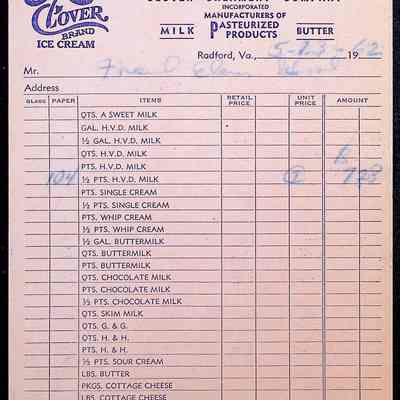 CLOVER CREAMERY COMPANY
INCORPORATED
CLOVER
BRAND
ICE CREAM
MANUFACTURERS OF
MILK PASTEURIZED PRODUCTS BUTTER
Radford, Va., 19 62
Mr.
Address
GLASS PAPER ITEMS RETAIL PRICE UNIT PRICE AMOUNT
QTS. A SWEET MILK
GAL. H.V.D. MILK
½ GAL. H.V.D. MILK
QTS. H.V.D. MILK
PTS. H.V.D. MILK
104 ½ PTS. H.V.D. MILK 7 28
PTS. SINGLE CREAM
½ PTS. SINGLE CREAM
PTS. WHIP CREAM
½ PTS. WHIP CREAM
½ GAL. BUTTERMILK
QTS. BUTTERMILK
PTS. BUTTERMILK
QTS. CHOCOLATE MILK
PTS. CHOCOLATE MILK
½ PTS. CHOCOLATE MILK
QTS. SKIM MILK
QTS. G. & G.
QTS. H. & H.
PTS. H. & H.
½ PTS. SOUR CREAM
LBS. BUTTER
PKGS. COTTAGE CHEESE
LBS. COTTAGE CHEESE